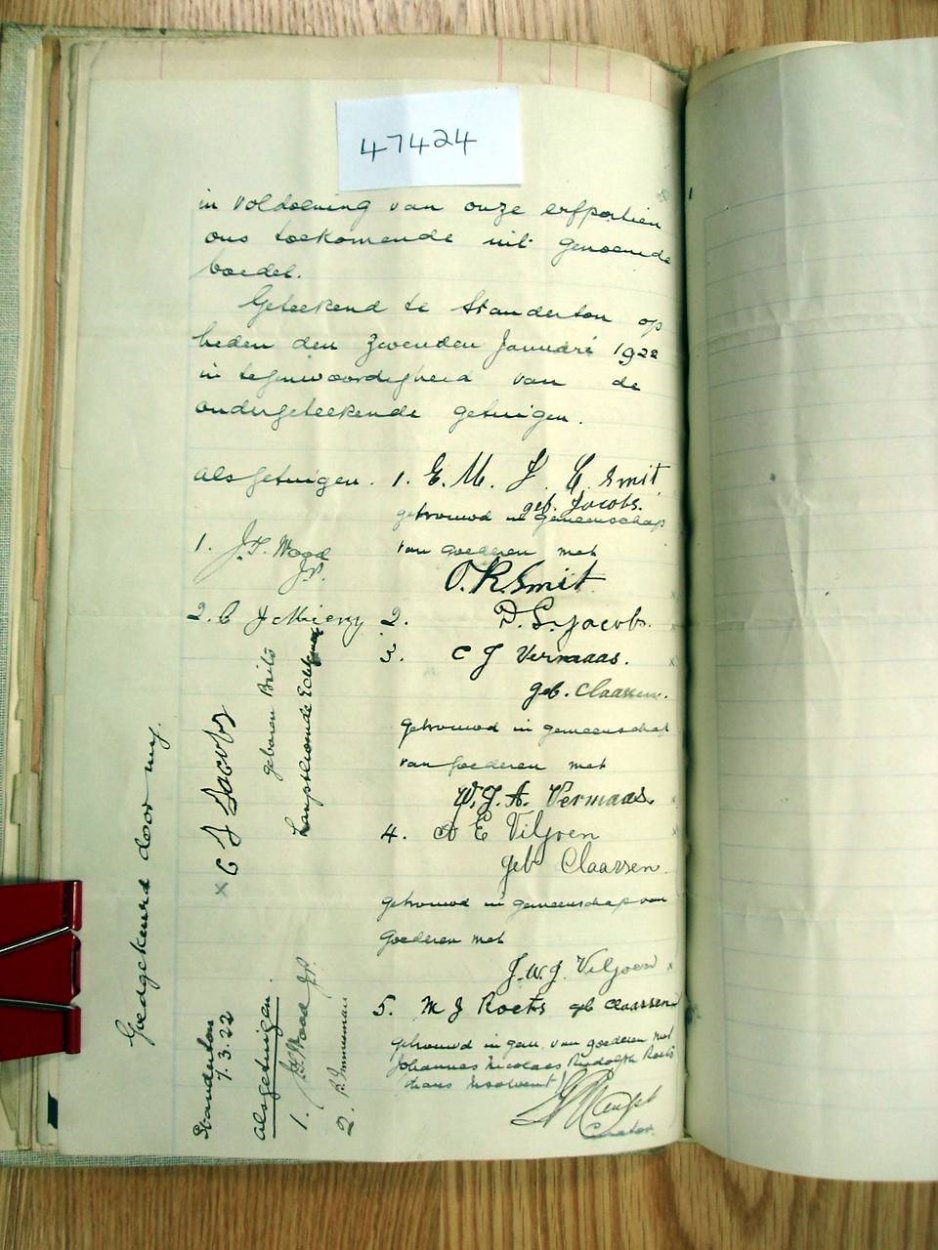 47424
in voldoening van onze erfportien
ons toekomende uit genoemde
boedel.
Geteekend te Standerton op
heden den zevenden Januari 1922
in tegenwoordigheid van de
ondergeteekende getuigen.
als getuigen. 1. E. M. J. E. Smit
geb. Jacobs.
getrouwd in gemeenschap
van goederen met
O. R. Smit
1. J. T. Wood
J.P.
2. C J Meiery 2. D. S. Jacobs.
3. C J Vermaas.
geb. Claassen.
getrouwd in gemeenschap
van goederen met
W. J. A. Vermaas.
4. A E Viljoen
geb Claassen.
getrouwd in gemeenschap van
goederen met
J. W. J. Viljoen
5. M J Roets geb Claassen
getrouwd in gem. van goederen met
Johannes Nicolaas Rudolph Roets
thans insolvent
Curator.
Goedgekeurd door my.
x C J Jacobs
geboren Brits
Standerton
7.3.22
Als getuigen.
1. J. T. Wood J.P.
2.